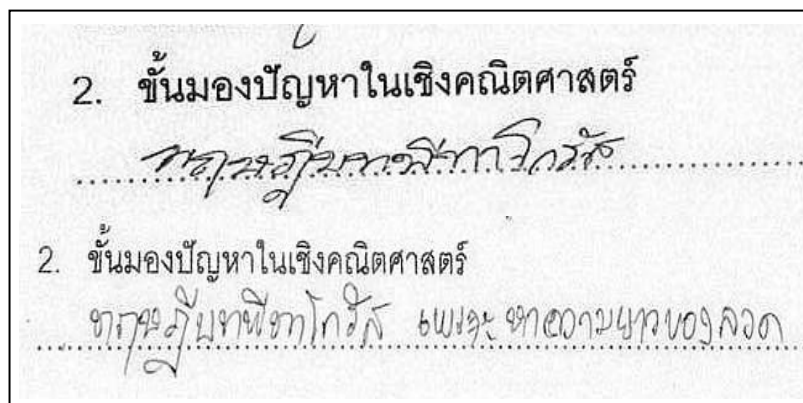 2. ขั้นมองปัญหาในเชิงคณิตศาสตร์
ทฤษฎีบทพีทาโกรัส
2. ขั้นมองปัญหาในเชิงคณิตศาสตร์
ทฤษฎีบทพีทาโกรัส เพราะ หาความยาวของลวด